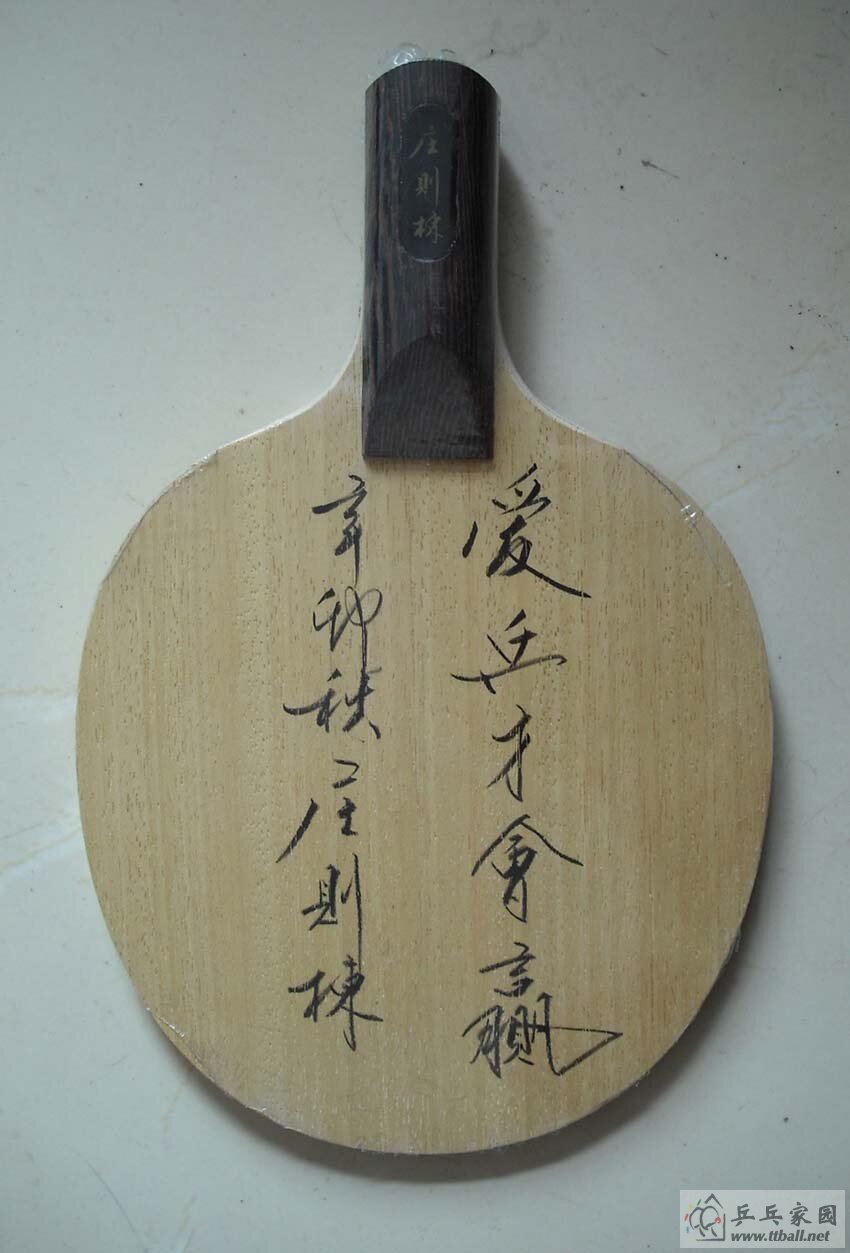 庄則棟
爱乒才會贏
辛卯秋 庄則棟
乒乓家园
www.ttball.net